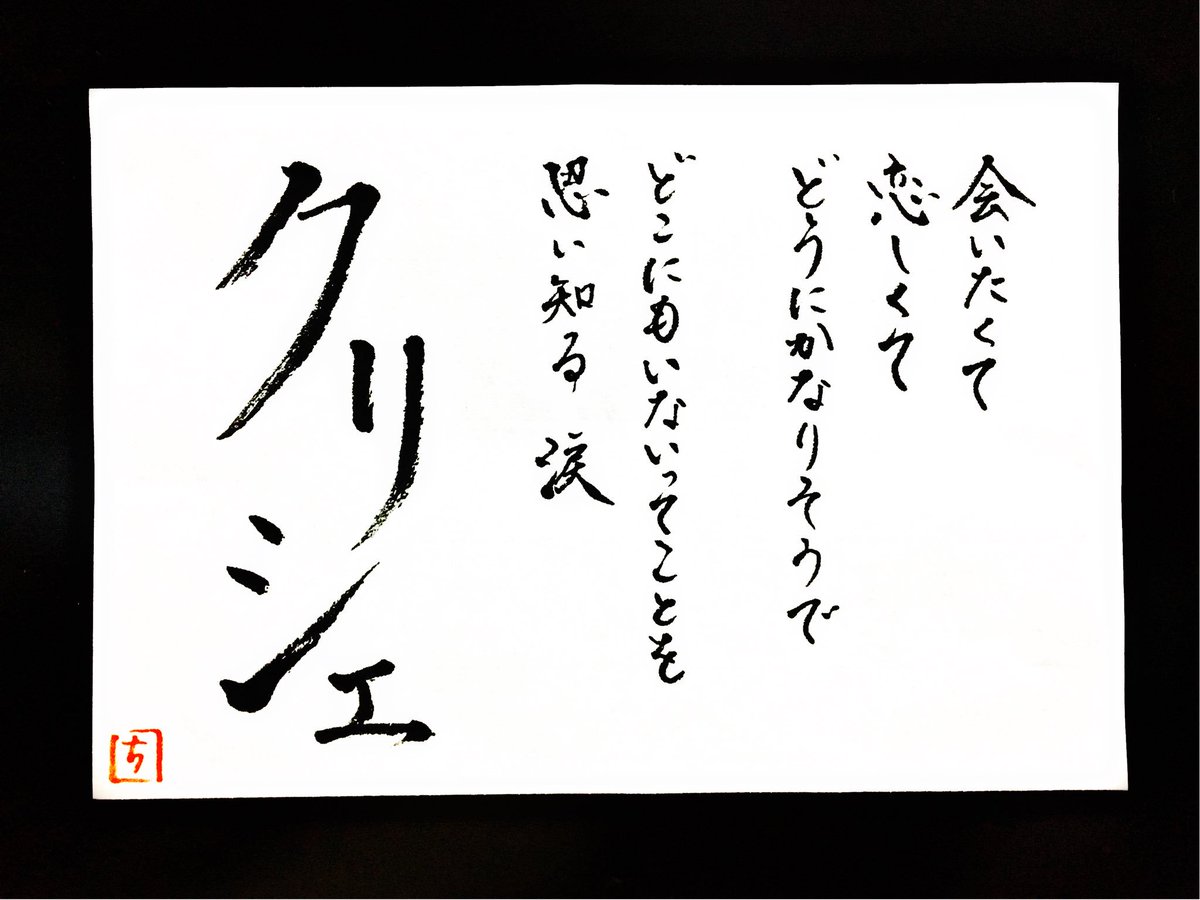 会いたくて
恋しくて
どうにかなりそうで
どこにもいないってことを
思い知る 涙
クリシェ